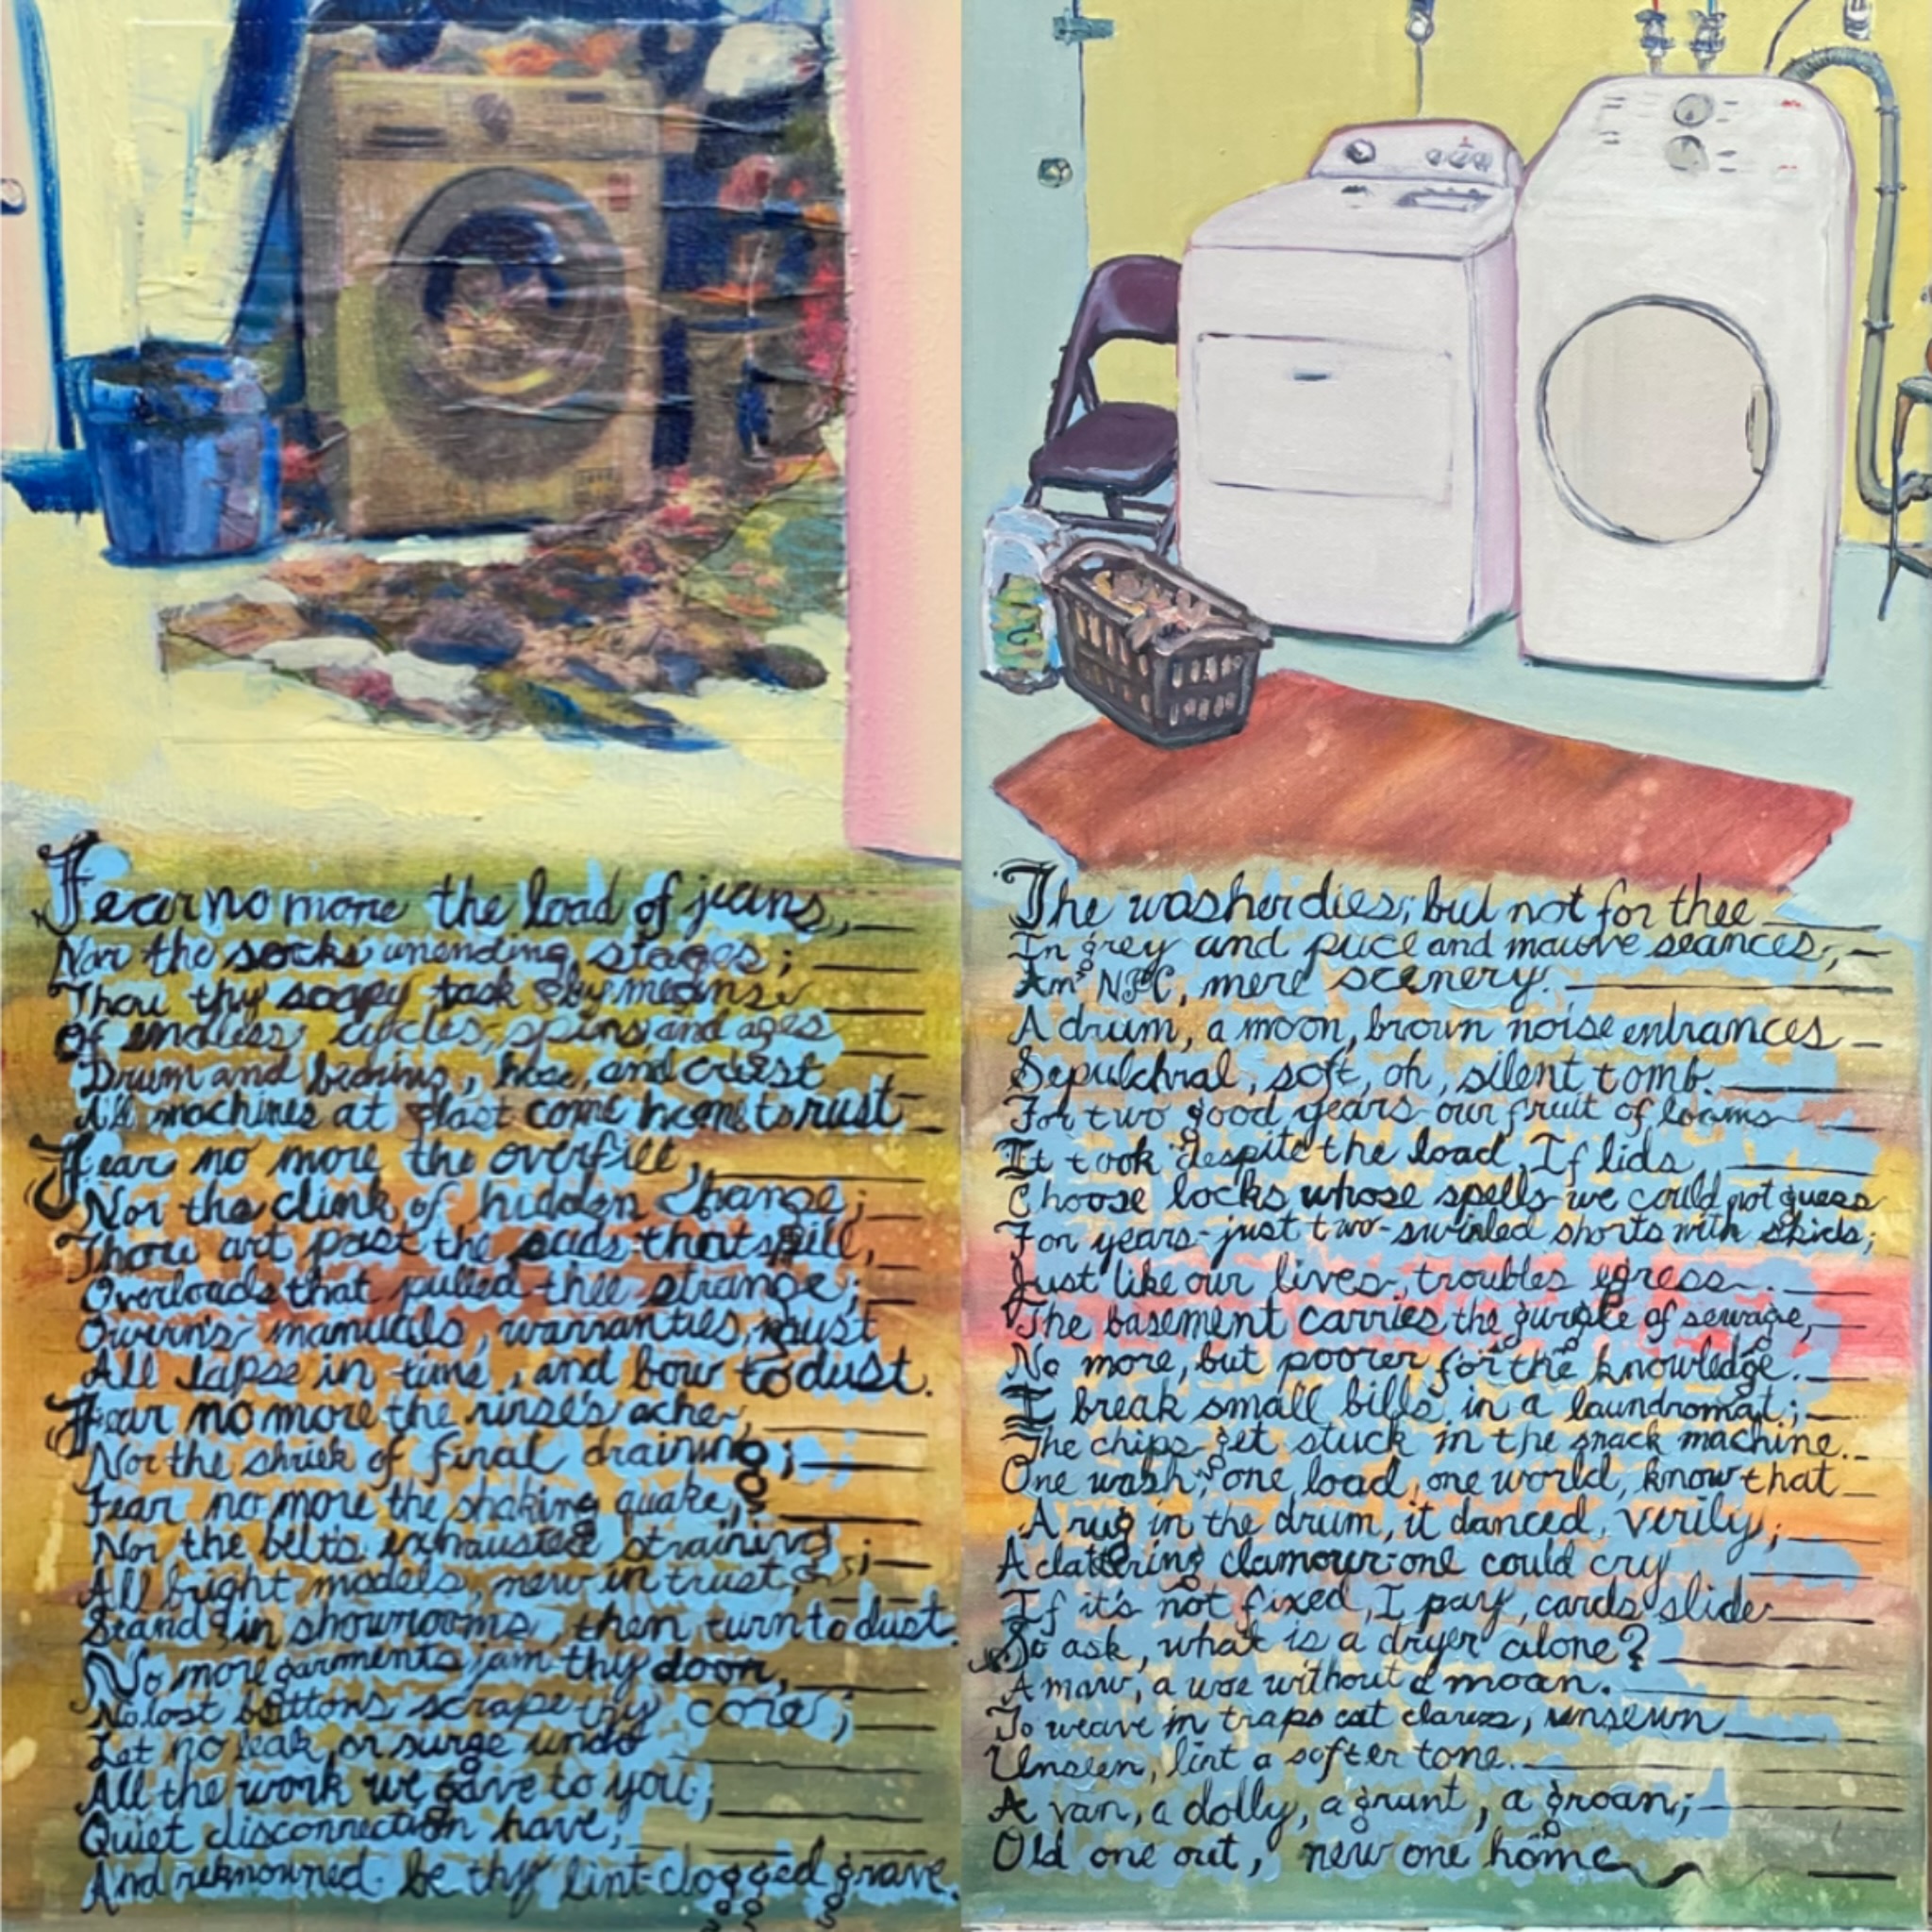 Fear no more the load of jeans,
Nor the socks unending stages;
Thou thy soapy task by means
Of endless cycles, spins and ages
Drum and bearing, hose, and crest
All machines at last come home to rust
Fear no more the overfill,
Nor the clink of hidden change;
Thou art past the suds that spill,
Overloads that pulled thee strange;
Owern's manuals, warranties, must
All lapse in time, and bow to dust.
Fear no more the rinse's ache,
Nor the shriek of final draining;
Fear no more the shaking quake,
Nor the belt's exhausted straining;
All bright models, new in trust,
Stand in showrooms, then turn to dust.
No more garments jam thy door,
No lost buttons scrape thy core;
Let no leak or surge undo
All the work we gave to you;
Quiet disconnection have,
And reknowned be thy lint-clogged grave.
The washer dies; but not for thee
In grey and puce and mauve seances,
An NPC, mere scenery.
A drum, a moon, brown noise entrances
Sepulchral, soft, oh, silent tomb.
For two good years our fruit of looms
It took despite the load, If lids
Choose locks whose spells we could not guess
For years-just two-swirled shorts with skids;
Just like our lives, troubles egress.
The basement carries the gurgle of sewage,
No more, but poorer for the knowledge.
I break small bills in a laundromat;
The chips get stuck in the snack machine.
One wash, one load, one world, know that
A rug in the drum, it danced, verily;
A clattering clamour-one could cry
If it's not fixed, I pay, cards slide
So ask, what is a dryer alone?
A maw, a woe without a moan.
To weave in traps cat claws, unseen
Unseen, lint a softer tone.
A van, a dolly, a grunt, a groan;
Old one out, new one home